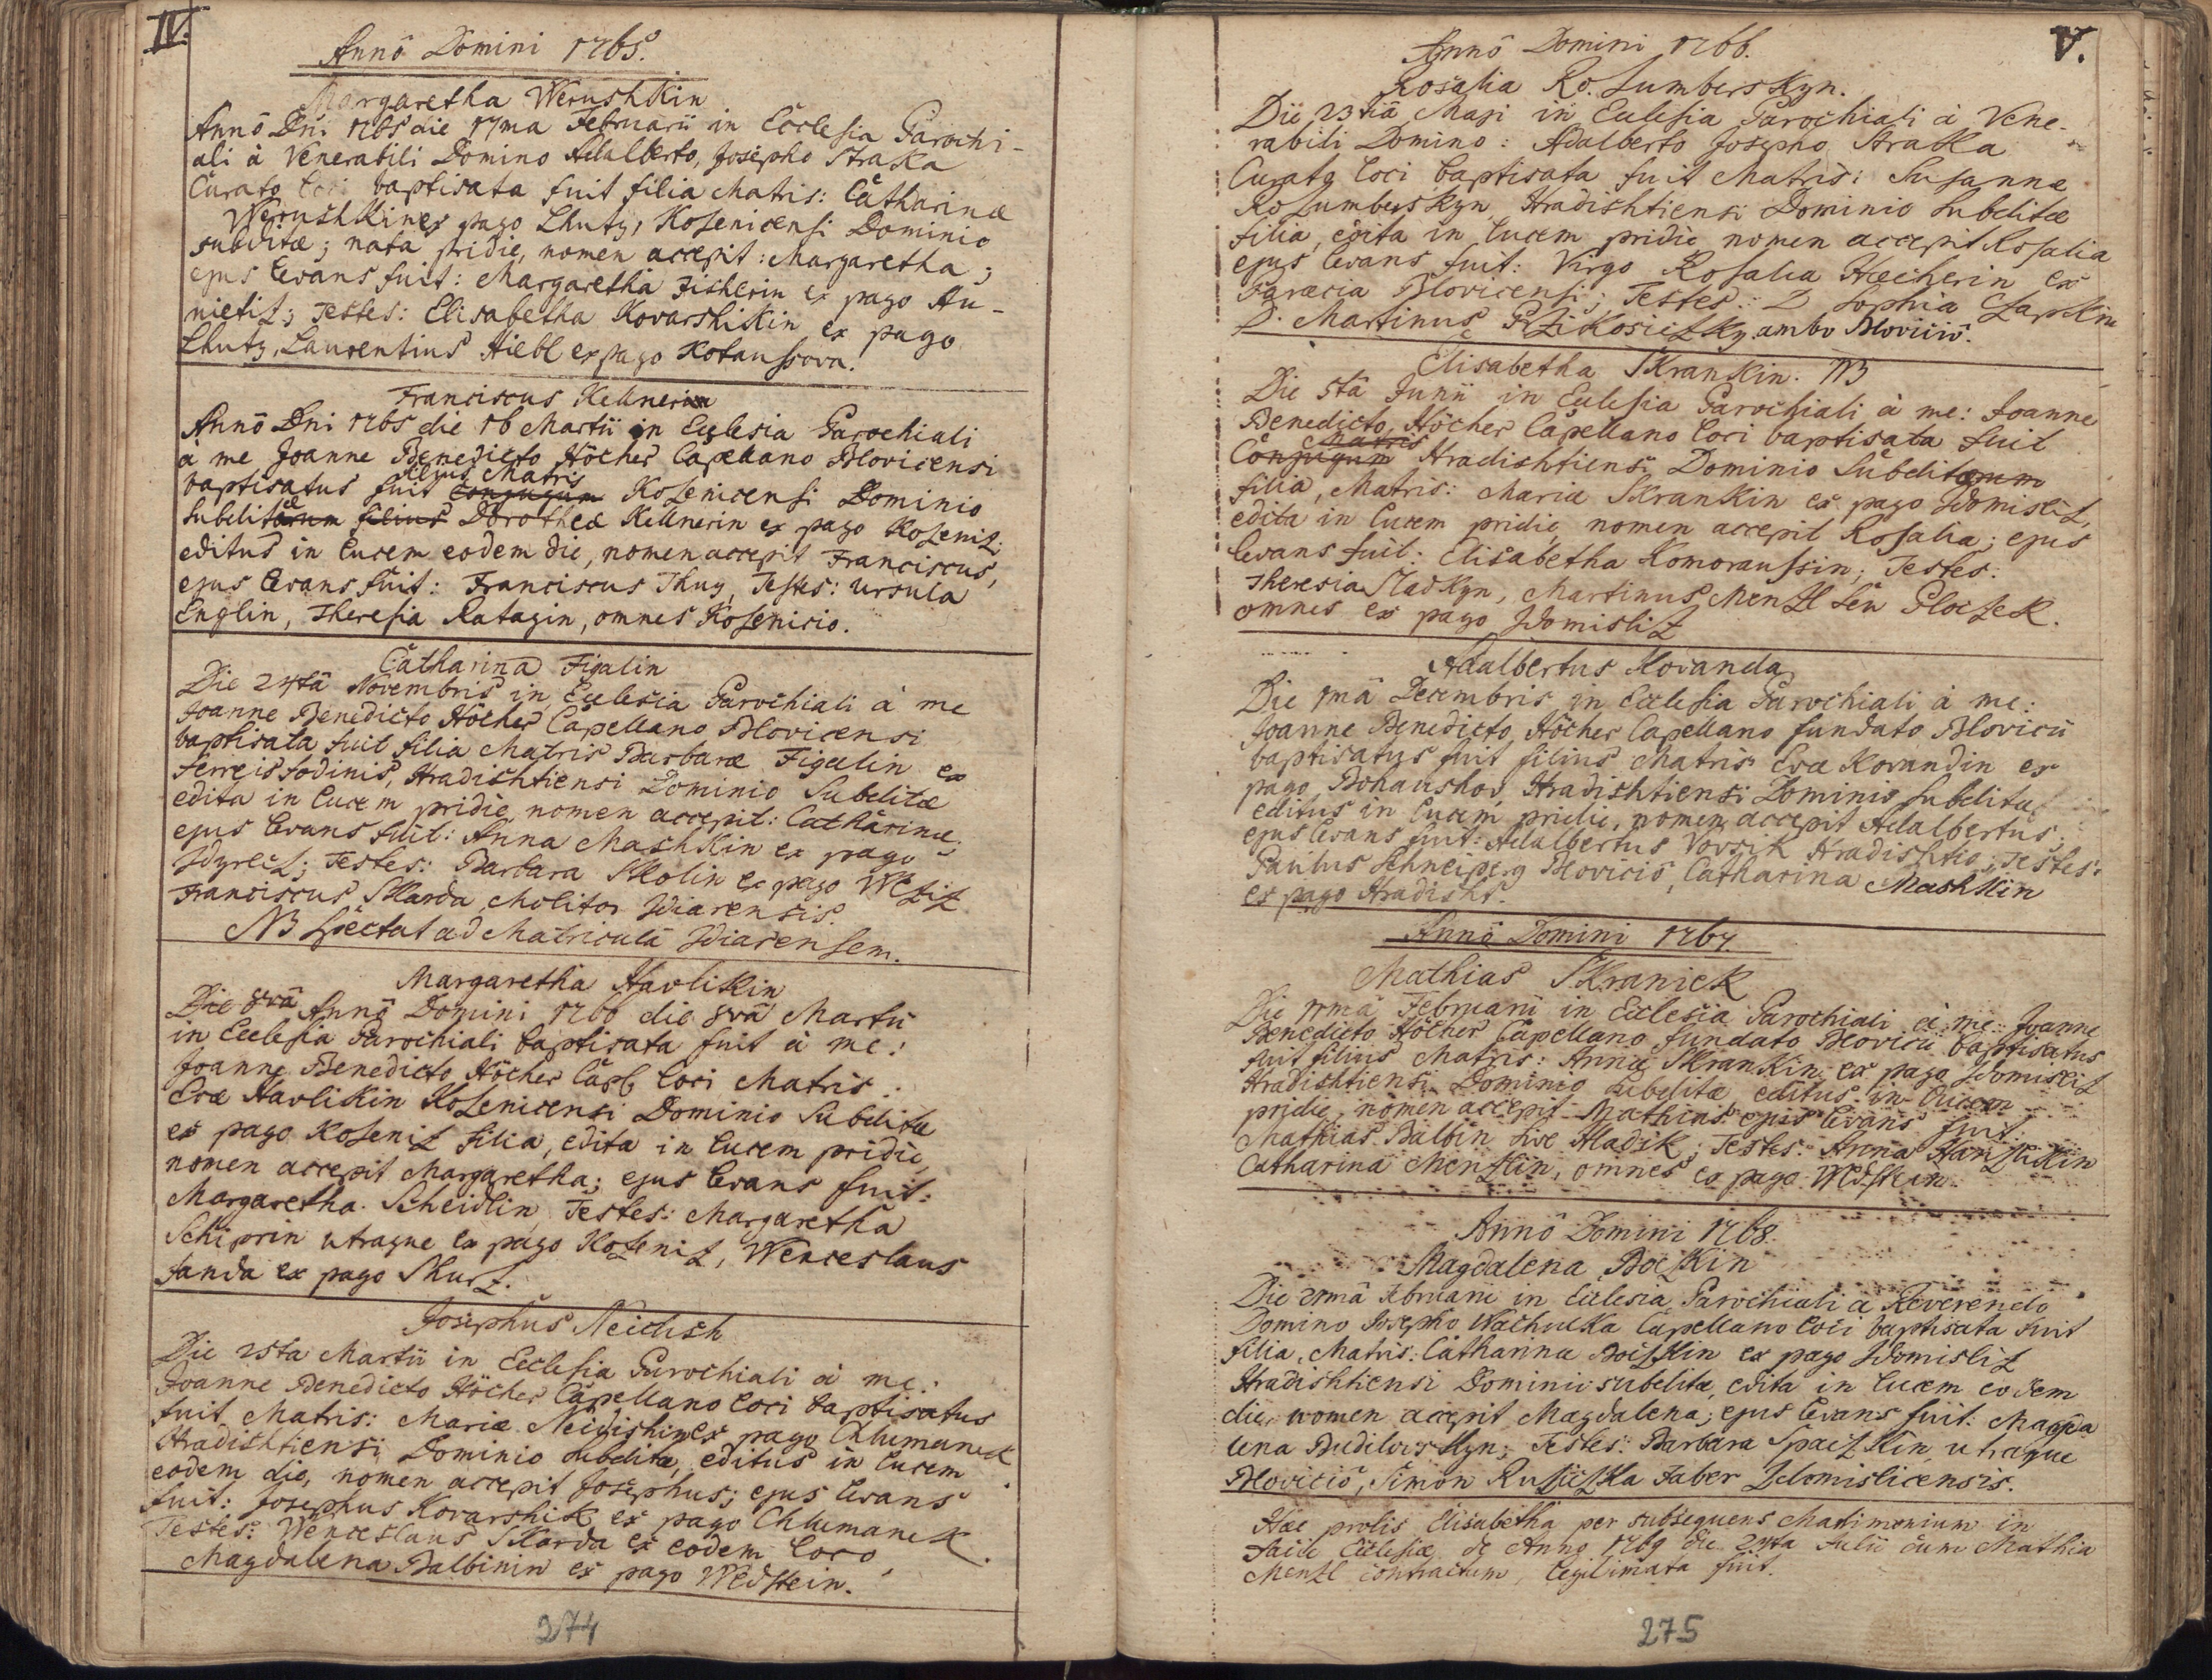 IV.
Annô Domini 1765.
Margaretha Werushkin
Annô Dni 1765 die 17ma Februarii in Ecclesia Parochi-
ali à Venerabili Domino Adalberto, Josepho Straka
Curato baptisata fuit filia Matris: Catharinæ
Werrushkin ex pago Lhuty, Kosenicensi Dominio
subditæ; nata pridie, nomen accepit: Margaretha;
ejus levans fuit: Margaretha Fisherin ex pago Au-
nietiz; Testes: Elisabetha Kovarshikin ex pago
Lhuty, Laurentius Hiebl ex pago Kotaussova.
Franciscus Kellnerin
Annô Dni 1765 die 16 Martii in Ecclesia Parochiali
a me Joanne Benedicto Höcher Capellano Blovicensi
filius Matris
baptisatus fuit Conjugum Kosenicensi Dominio
subditæorum filius Dorotheæ Kellnerin ex pago Koseniz
editus in lucem eodem die, nomen accepit Franciscus,
ejus levans fuit: Franciscus Thuy, Testes: Ursula
Englin, Theresia Ratagin, omnes Kosenicio.
Catharina Figalin
Die 24tâ Novembris in Ecclesia Parochiali à me
Joanne Benedicto Höcher Capellano Blovicensi
baptisata fuit filia Matris Barbaræ Figalin ex
Ferreis fodinis, Hradishtiensi Dominio Subditæ
edita in lucem pridie nomen accepit: Catharinæ;
ejus levans fuit: Anna Mashkin ex pago
Zdyrecz; Testes: Barbara Skolin ex pago Wcziz
Franciscus Skarda Molitor Zdiarensis
NB Spectat ad Matriculâ Zdiarensem.
Margaretha Havlikin
Die 8vâ Annô Domini 1766 die 8vâ Martii
in Ecclesia Parochiali baptisata fuit à me:
Joanne Benedicto Höcher Capl. loci Matris:
Evæ Havlikin Kosenicensi Dominio Subditæ
ex pago Koseniz filia, edita in lucem pridie,
nomen accepit Margaretha; ejus levans fuit:
Margaretha Scheidlin, Testes: Margaretha
Schiprin utraque ex pago Koseniz, Wenceslaus
Janda ex pago Skurz.
Josephus Neidish
Die 25ta Martii in Ecclesia Parochiali à me:
Joanne Benedicto Höcher Capellano loci baptisatus
fuit Matris: Mariæ Neidishin ex pago Chlumanek
Hradishtiensi Dominio subdita, editus in lucem
eodem die, nomen accepit Josephus; ejus levans
fuit: Josephus Kovarshik ex pago Chlumanek.
Testes: Wenceslaus Skarda ex eodem loco,
Magdalena Balbinin ex pago Wedstein.
274
V.
Annô Domini 1766.
Rosalia Rosumberskyn.
Die 23tiâ Maji in Ecclesia Parochiali à Vene-
rabili Domino: Adalberto Josepho Straka
Curato loci baptisata fuit Matris: Susannæ
Rosumberskyn Hradishtiensi Dominio subditæ
filia, edita in lucem pridie nomen accepit Rosalia
ejus levans fuit: Virgo Rosalia Hœcherin ex
Paræcia Blovicensi; Testes: D Sophia Czapkin
D. Martinus Przikosiczky ambo Blovicio.
Elisabetha Skrankin. NB
Die 5tâ Junii in Ecclesia Parochiali à me: Joanne
Benedicto Höcher Capellano loci baptisata fuit
Matris
Conjugum Hradishtiensi Dominio Subditæorum
filia, Matris: Mariæ Skrankin ex pago Zdomisliz,
edita in lucem pridie nomen accepit Rosalia; ejus
levans fuit: Elisabetha Komoraussin; Testes:
Theresia Sladkyn, Martinus Menzl seu Ploczek.
omnes ex pago Zdomisliz
Adalbertus Kovanda
Die 1mâ Decembris in Ecclesia Parochiali à me:
Joanne Benedicto Höcher Capellano fundato Blovicii
baptisatus fuit filius Matris Evæ Kovandin ex
pago Bohaushov, Hradishtiensi Dominio subditæ
editus in lucem pridie, nomen accepit Adalbertus;
ejus levans fuit: Adalbertus Vorzik Hradishtio; Testes:
Paulus Schneiperg Blovicio, Catharina Mashkin
ex pago Hradisht.
Annô Domini 1767.
Mathias Skraniek
Die 11mâ Februarii in Ecclesia Parochiali à me: Joanne
Benedicto Höcher Capellano fundato Blovicii baptisatus
fuit filius Matris: Annæ Skrankin ex pago Zdomisliz
Hradishtiensi Dominio subditæ, editus in lucem
pridie, nomen accepit Mathias: ejus levans fuit:
Mathias Balbin sive Hladik; Testes: Anna Hanzlikin
Catharina Menzlin, omnes ex pago Wedstein.
Annô Domini 1768.
Magdalena Boczkin
Die 21mâ Februarii in Ecclesia Parochiali à Reverendo
Domino Josepho Wachulka Capellano loci baptisata fuit
filia, Matris: Catharinæ Boczkin ex pago Zdomisliz
Hradishtiensi Dominio subditæ, edita in lucem eodem
die, nomen accepit Magdalena; ejus levans fuit: Magda
lena Budilovskyn; Testes: Barbara Spaczkin utraque
Blovicio, Simon Rusiczka Faber Zdomislicensis.
Hæc prolis Elisabetha per subsequens Matrimonium in
facie Ecclesiæ de Anno 1769 die 24ta Julii cum Mathia
Menzl contractum, legitimata fuit.
275